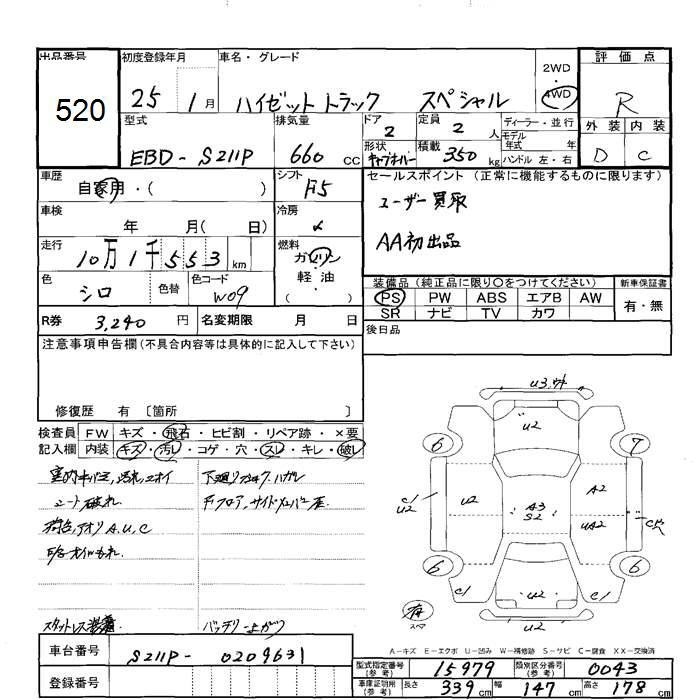 出品番号 初度登録年月 車名・グレード 2WD・4WD 評価点
520 25 1月 ハイゼット トラック スペシャル R
型式 排気量 ドア 2 定員 2人 ディーラー・並行 外装 内装
EBD-S211P 660cc 形状 積載 350kg モデル年式 年 ハンドル 左・右 D C
車歴 自家用・( ) シフト F5 セールスポイント (正常に機能するものに限ります)
車検 年 月( 日) 冷房 ユーザー買取
走行 10万1千553km 燃料 ガソリン・軽油 ( ) AA初出品
色 シロ 色替 色コード W09 装備品 (純正品に限り〇をつけてください) 新車保証書
PS PW ABS エアB AW 有・無
SR ナビ TV カワ
R券 3,240円 名変期限 月 日 後日品
注意事項申告欄(不具合内容等は具体的に記入して下さい)
修復歴 有 [箇所 ]
検査員記入欄 FW キズ・飛石・ヒビ割・リペア跡・×要
内装 キズ・汚レ・コゲ・穴・スレ・キレ・破レ
シート破れ
荷台,アオリ A.U.C
スタッドレス装着
下廻り
Fフロア,サイドメンバー
バッテリー上がり
U3
U2
6 7
C1 U2 U2 A3 S2 A2 UA2
6 6
C1 U2 C1
スペア
A-キズ E-エクボ U-凹み W-補修跡 S-サビ C-腐食 XX-交換済
車台番号 S211P-0209631
登録番号
型式指定番号(参考) 15979 類別区分番号(参考) 0043
車庫証明用(参考) 長さ 339cm 幅 147cm 高さ 178cm